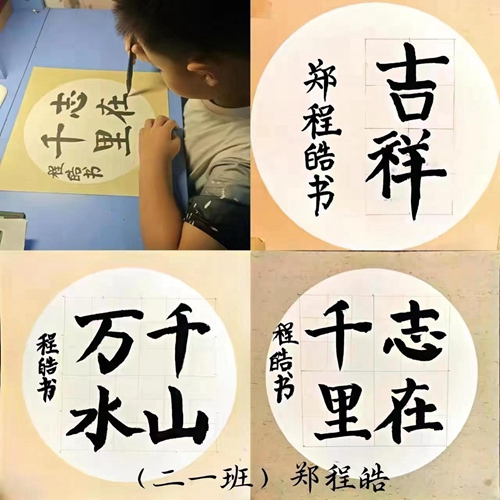 志在
千里
程皓书
吉祥
郑程皓书
千山
万水
程皓书
志在
千里
程皓书
（二一班）郑程皓